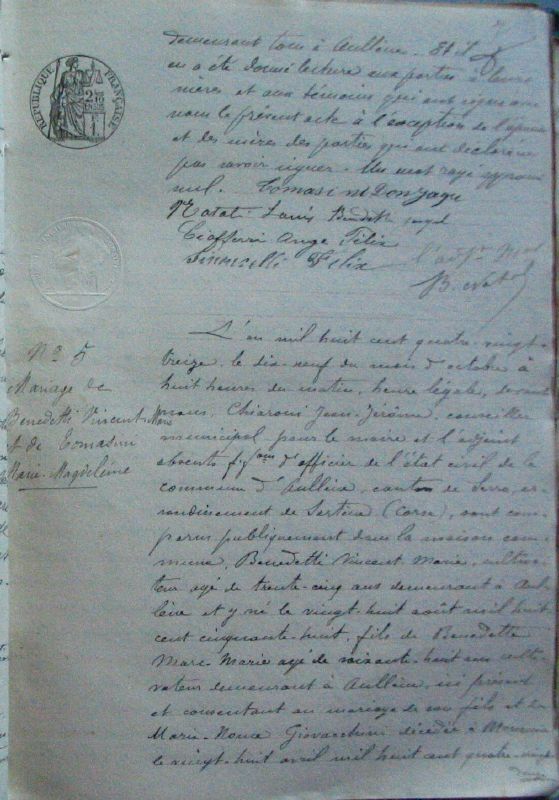 RÉPUBLIQUE FRANÇAISE
demeurant tous à Aullène. Et il
en a été donné lecture aux parties à leurs
mères et aux témoins qui ont signé avec
nous le présent acte à l'exception de l'épouse
et des mères des parties qui ont déclaré ne
pas savoir signer. Un mot rayé approuvé
nul. Tomasini Don Jayu
Natali Louis Benedetti
Cioffervi Ange Félix
Simonelli Felix l'adjt
B.
N° 5
Mariage de
Benedetti Vincent-Marie
et de Tomasini
Marie-Magdeleine
L'an mil huit cent quatre-vingt-
treize, le dix-neuf du mois d'octobre à
huit heures du matin, heure légale, devant
nous, Chiaroni Jean-Jérôme, conseiller
municipal, pour le maire et l'adjoint
absents, d'officier de l'état civil de la
commune d'Aullène, canton de Serra, ar-
rondissement de Sartène (Corse), sont com-
parus publiquement dans la maison com-
mune, Benedetti Vincent Marie, cultiva-
teur âgé de trente-cinq ans demeurant à Aul-
lène et y né le vingt-huit août mil huit
cent cinquante-huit, fils de Benedetti
Marc-Marie âgé de soixante-huit ans culti-
vateur demeurant à Aullène, ici présent
et consentant au mariage de son fils et de
Marie-Nonce Giovacchini décédée à
le vingt-huit avril mil huit cent quatre-vingt